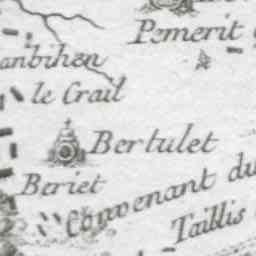 Pemerit
anbihen
le Crail
Bertulet
Beriet
Convenant du
Taillis